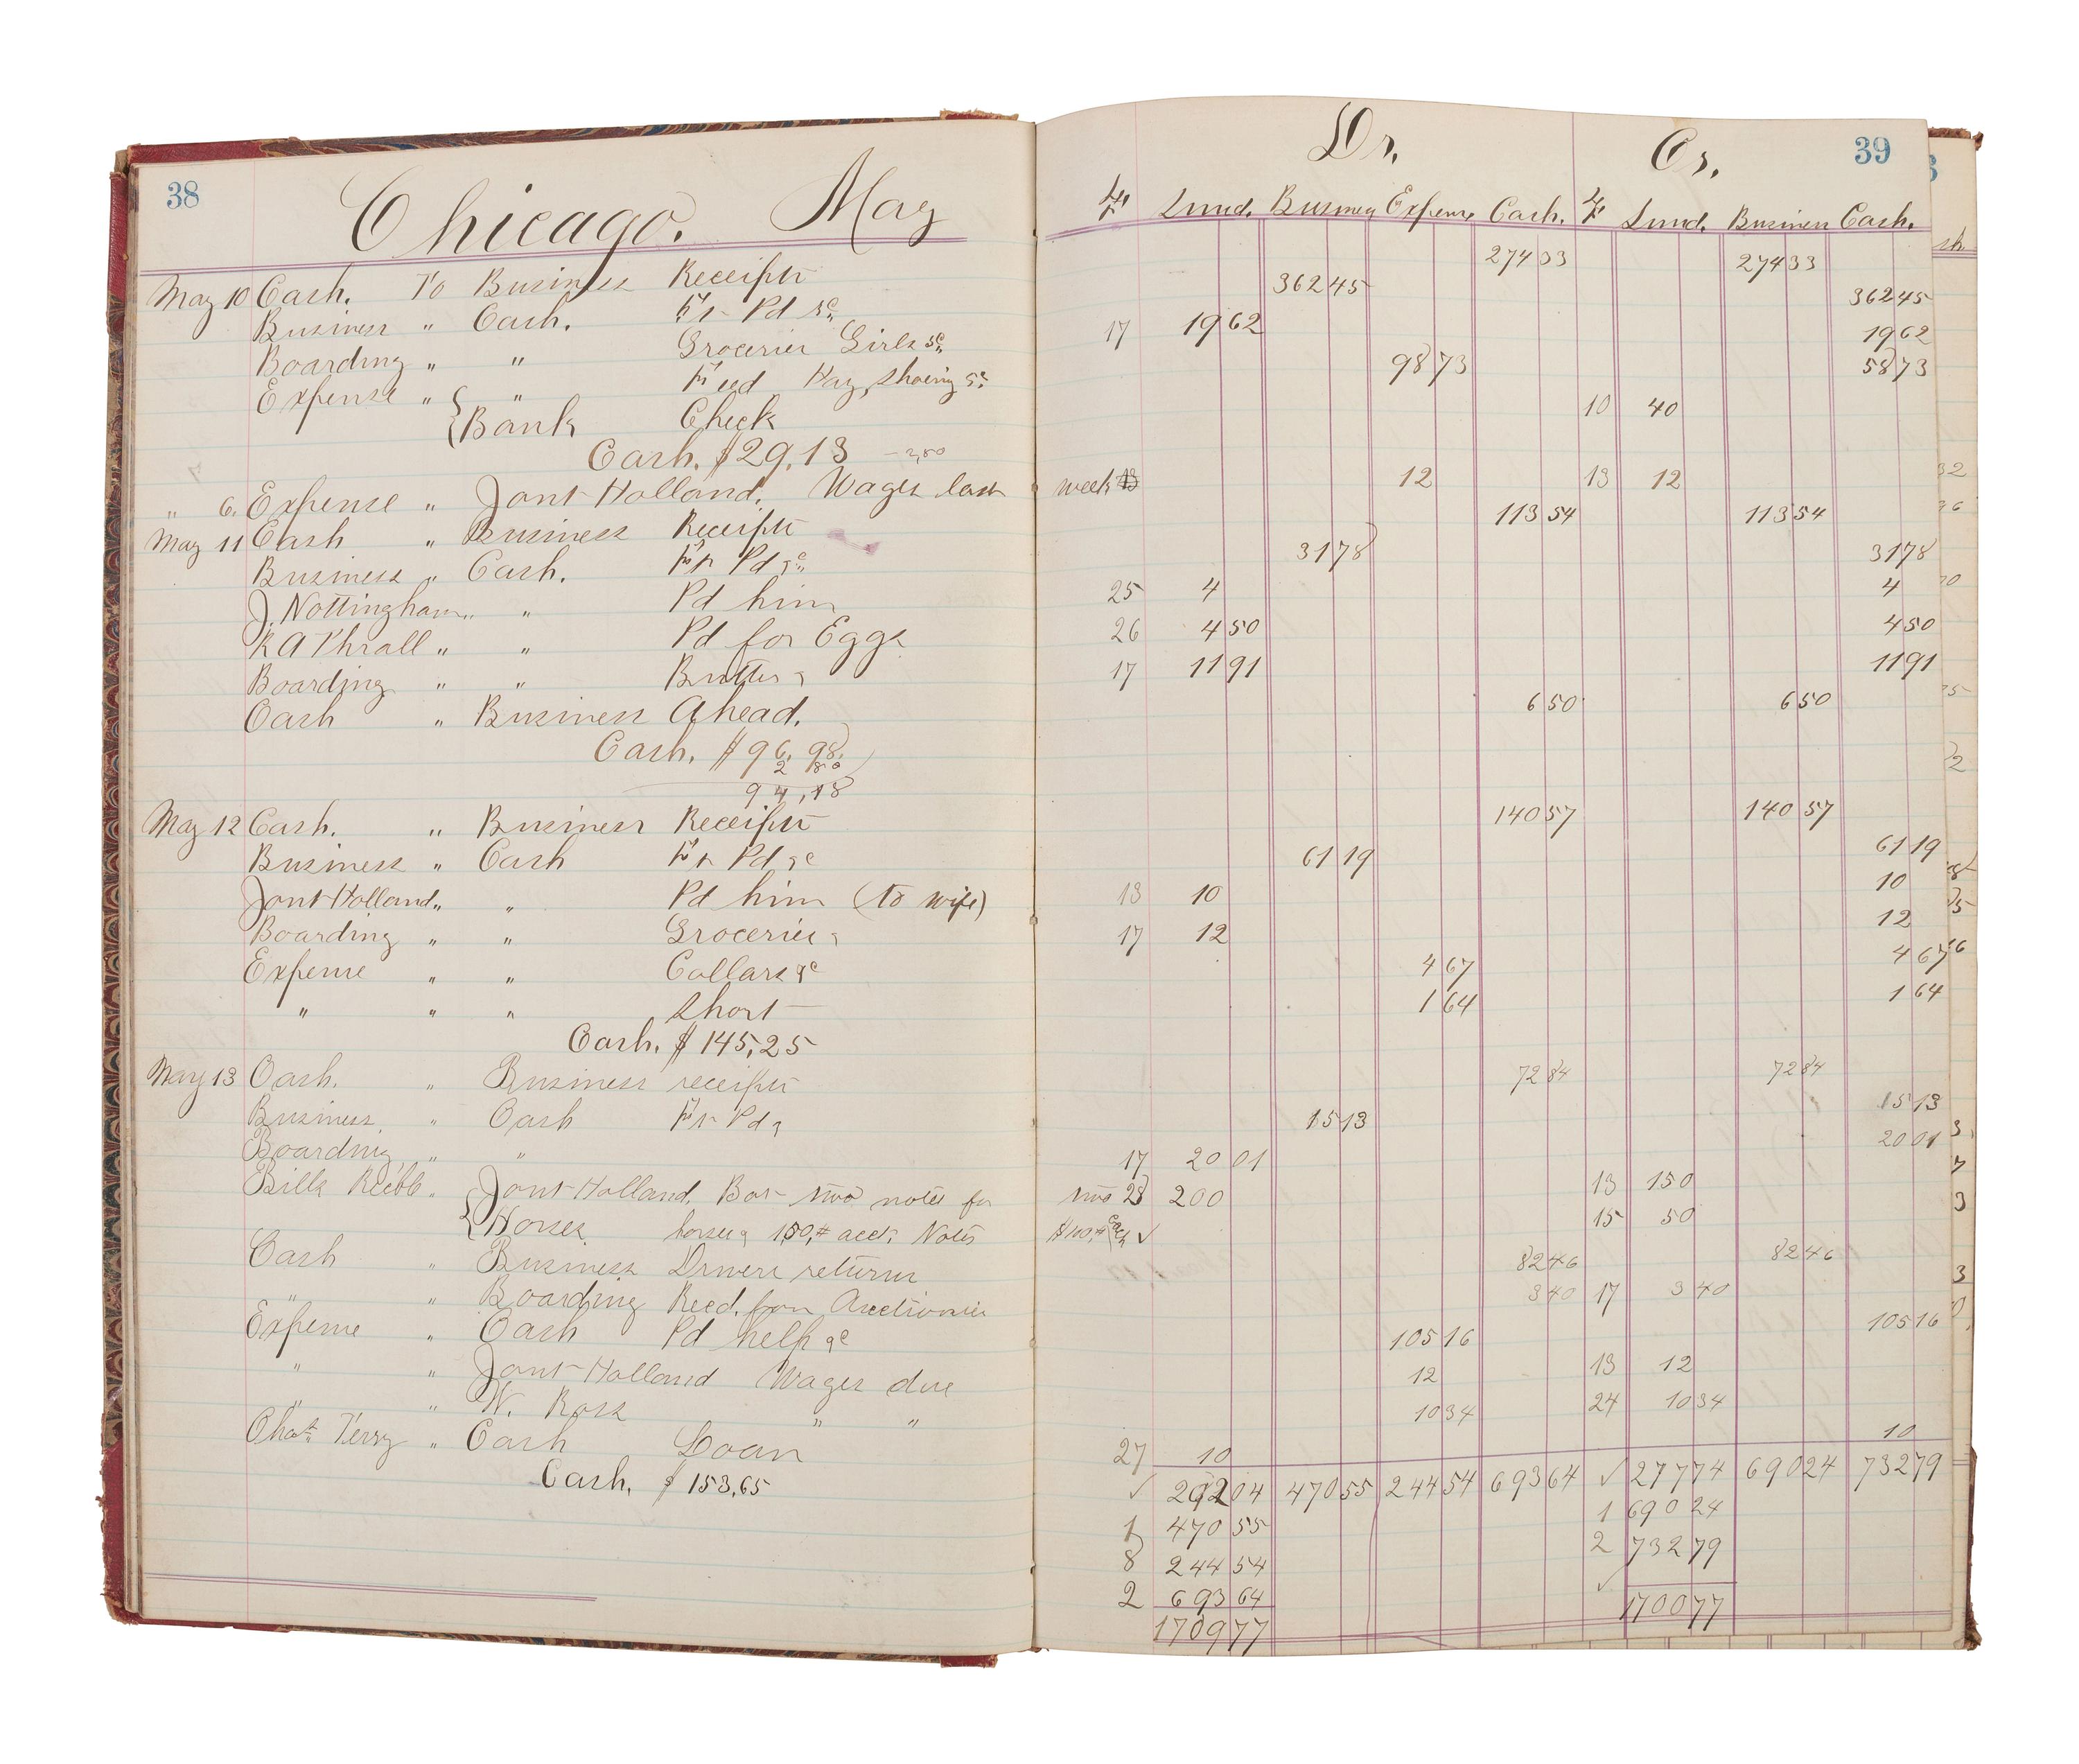 38
Chicago. May
May 10 Cash. To Business Receipts
Business " Cash. Frt Pd &c
Boarding " " Groceries Girls &c
Expense " { " Feed Hay, Shoeing &c
{ Bank Check
Cash. $29.13 – 2,80
" 6. Expense " Jont Holland. Wages last
May 11 Cash " Business Receipts
Business " Cash. Frt Pd &c
J. Nottingham " " Pd him
R A Thrall " " Pd for Eggs
Boarding " " Butter &
Cash " Business Ahead.
Cash. $96.98
2 80
94,18
May 12 Cash. " Business Receipts
Business " Cash Frt Pd &c
Jont Holland " " Pd him (to wife)
Boarding " " Groceries &
Expense " " Collars &c
" " " Short
Cash. $145,25
May 13 Cash. " Business receipts
Business " Cash Frt Pd &
Boarding " "
Bills Recble " { Jont Holland. Bot two notes for
{ Horses. horses & 150,# acct; Notes
Cash " Business Drivers returns
" " Boarding Recd. from Auctionier
Expense " Cash Pd help &c
" " Jont Holland Wages due
" " N. Ross " "
Chas Terry " Cash Loan
Cash. $153,65
Dr. Cr. 39
LF Sund. Business Expense Cash. LF Sund. Business Cash.
274 33 274 33
362 45 362 45
17 19 62 19 62
98 73 58 73
10 40
week 13 12 13 12
113 54 113 54
31 78 31 78
25 4 4
26 4 50 4 50
17 11 91 11 91
6 50 6 50
140 57 140 57
61 19 61 19
13 10 10
17 12 12
4 67 4 67
1 64 1 64
72 84 72 84
15 13 15 13
17 20 01 20 01
two 28 200 13 150
each ✓ 15 50
82 46 82 46
3 40 17 3 40
105 16 105 16
12 13 12
10 34 24 10 34
27 10 10
✓ 292 04 470 55 244 54 693 64 ✓ 277 74 690 24 732 79
1 470 55 1 690 24
8 244 54 2 732 79
2 693 64 ✓
1700 77
1709 77